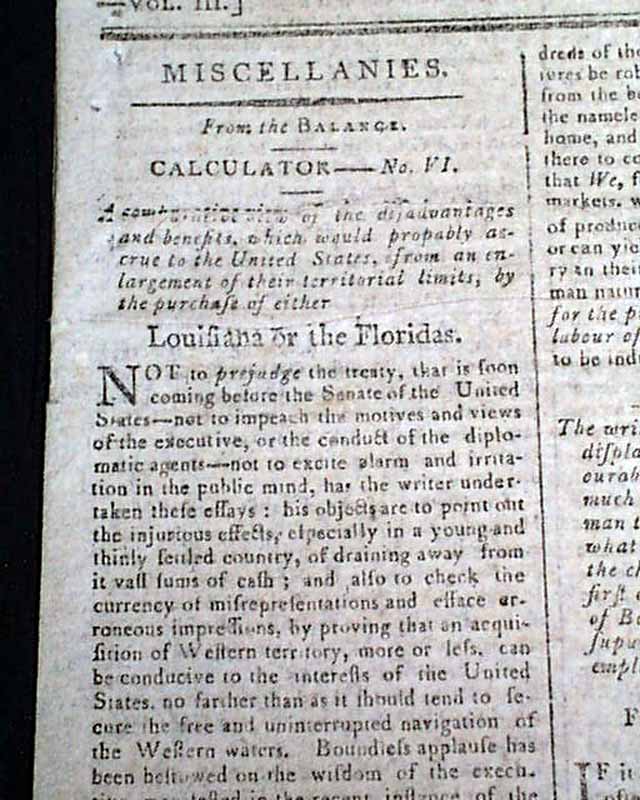 —VOL. III.]
MISCELLANIES.
From the BALANCE.
CALCULATOR—No. VI.
A comparative view of the diſadvantages
and benefits, which would propably ac-
crue to the United States, from an en-
largement of their territorial limits, by
the purchaſe of either
Louiſiana or the Floridas.
NOT to prejudge the treaty, that is ſoon
coming before the Senate of the United
States—not to impeach the motives and views
of the executive, or the conduct of the diplo-
matic agents—not to excite alarm and irrita-
tion in the public mind, has the writer under-
taken theſe eſſays : his objects are to point out
the injurious effects, eſpecially in a young and
thinly ſettled country, of draining away from
it vaſt ſums of caſh ; and alſo to check the
currency of miſrepreſentations and efface er-
roneous impreſſions, by proving that an acqui-
ſition of Weſtern territory, more or leſs, can
be conducive to the intereſts of the United
States, no farther than as it ſhould tend to ſe-
cure the free and uninterrupted navigation of
the Weſtern waters. Boundleſs applauſe has
been beſtowed on the wiſdom of the execu-
in the recent inſtance of the
dreds of the
ures be rob
from the b
the namele
home, and
there to co
that We, f
markets, w
of produc
or can yie
ry in their
man natur
for the p
labour of
to be ind
The wri
diſpla
curab
much
man t
what
the c
firſt
of B
ſupe
empl
F
IF it